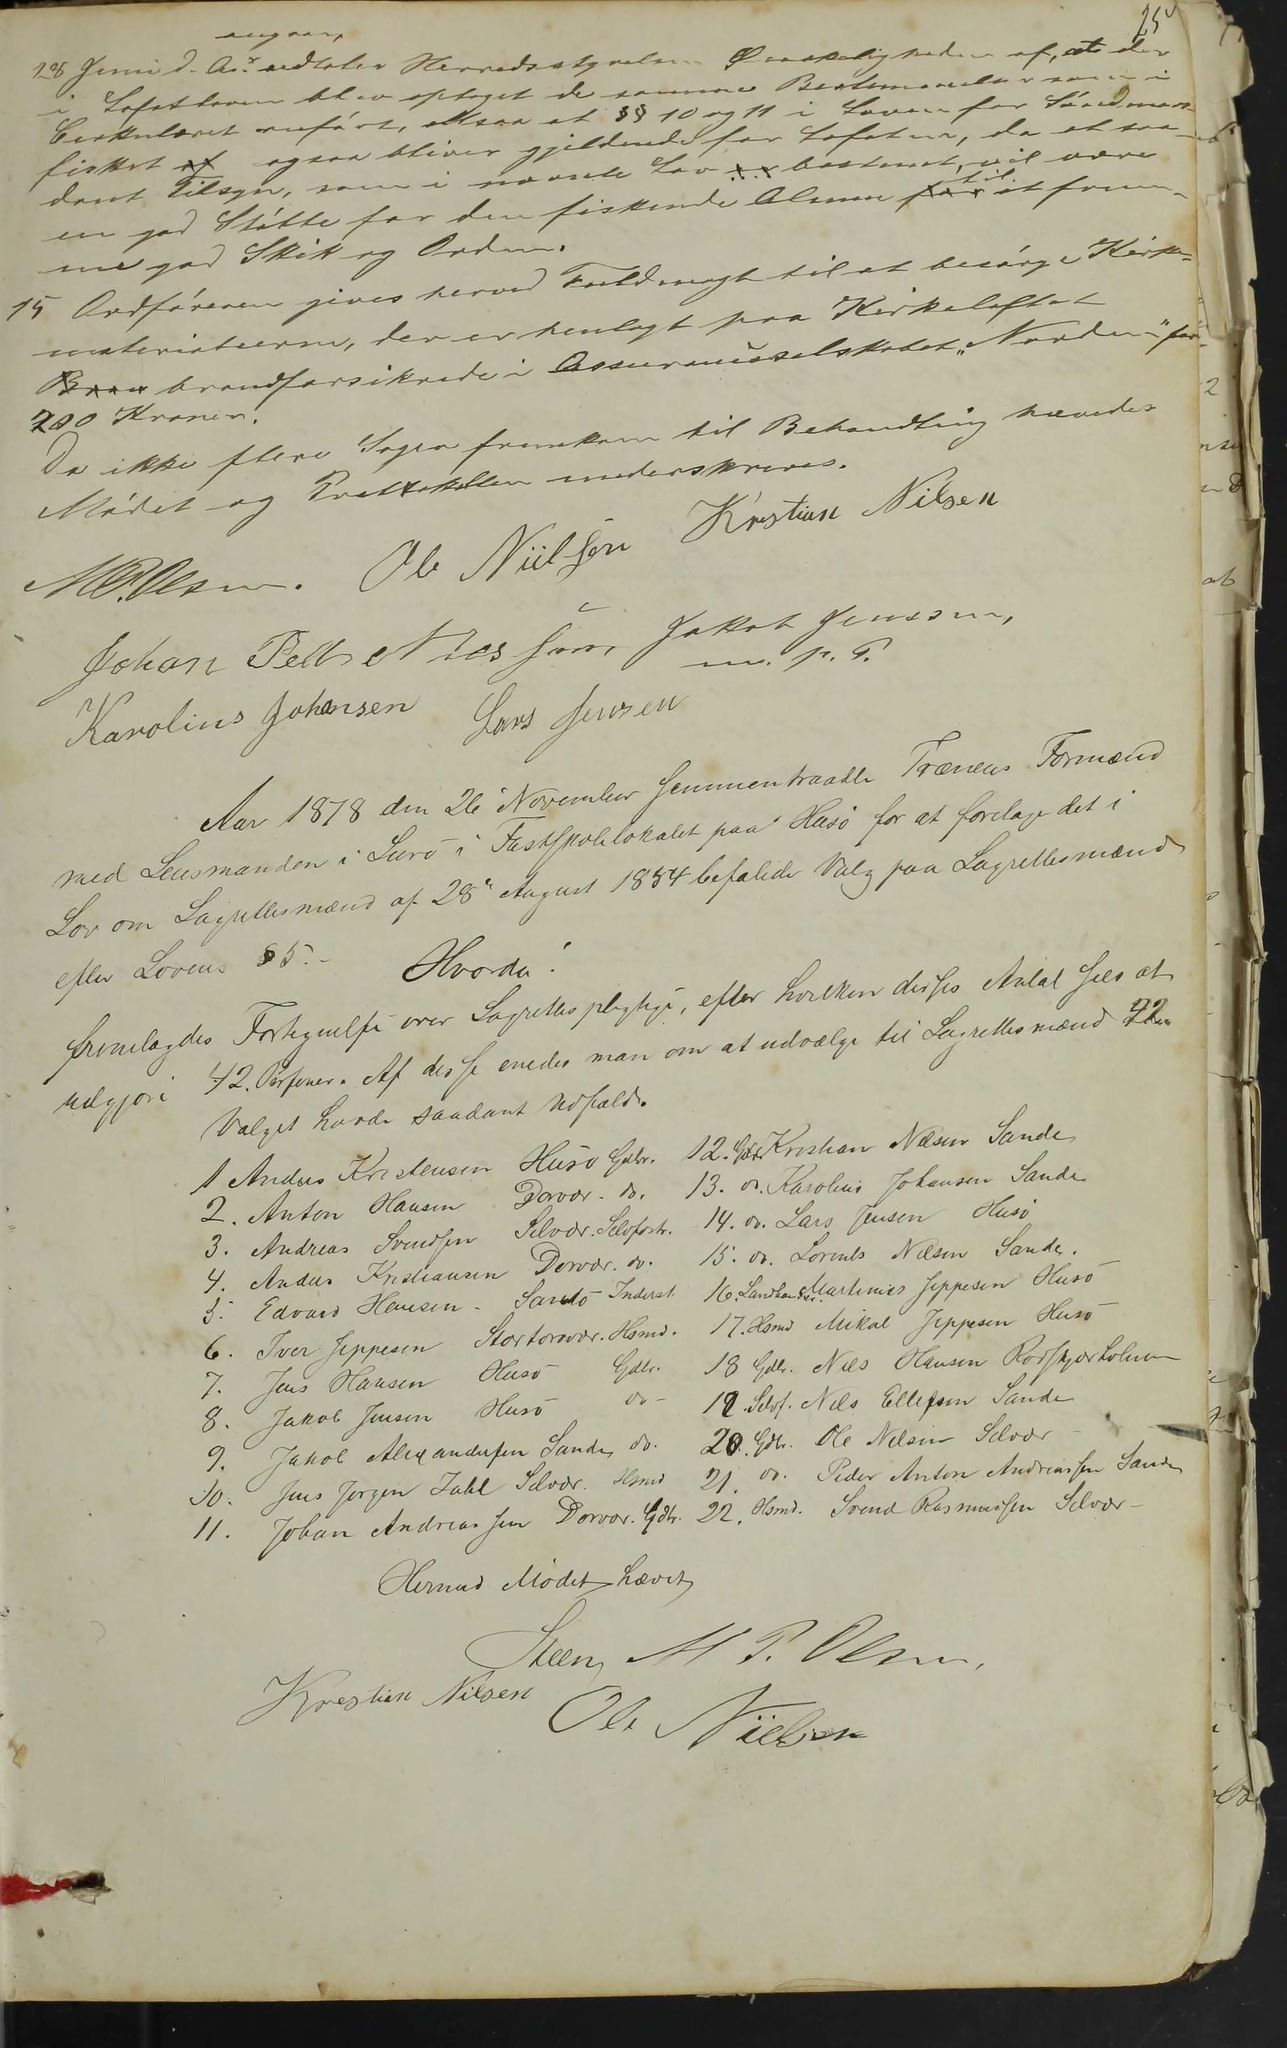 25
angaar
28 Juni d. A. udtaler Herredsstyrelsen Ønskeligheden af, at der
i Lofotloven blev optaget de samme Bestemmelser som i
Cirkulæret anført, altsaa at §§ 10 og 11 i Loven for Søndmørs
fisket af ogsaa bliver gjeldende for Lofoten, da et saa-
dant Tilsyn, som i nævnte Lov bestemt, vil være
en god Støtte for den fiskende Almue for til at frem-
me god Skik og Orden.
15 Ordføreren gives herved Fuldmagt til at besørge Kirke-
materialerne, der er henlagt paa Kirkeloftet
Bran brandforsikrede i Assuranceselskabet "Norden" for
200 Kroner.
Da ikke flere Sager fremkom til Behandling hævedes
Mødet og Protokollen underskreves.
M P. Olsen. Ole Niilsen Kristian Nilsen
Johan Petter Nilssen Jakob Jenssen,
m. p. P.
Karolius Johansen Lars Jensen
Aar 1878 den 26 November sammentraadte Trænens Formænd
med Lensmanden i Lurø i Fastskolelokalet paa Husø for at foretage det i
Lov om Lagrettesmænd af 28 August 1854 befalede Valg paa Lagrettesmænd
efter Lovens § 5.-
Hvorda!
fremlagdes Fortegnelse over Lagrettespligtige, efter hvilken disses Antal sees at
udgjøre 42. Personer. Af disse enedes man om at udvælge til Lagrettesmænd 22
Valget havde saadant Udfald.
1 Andreas Kristensen Husø Gdbr. 12. Gdbr. Kristian Nilsen Sande
2. Anton Hansen Dorvær. do. 13. do. Karolius Johansen Sande
3. Andreas Svendsen Selvær. Selvforts. 14. do. Lars Jensen Husø
4. Anders Kristiansen Dorvær. do. 15. do. Lorents Nilsen Sande.
5. Edvard Hansen - Sandø Inderst 16. Landhandler Martinus Jeppesen Husø
6. Iver Jeppesen Stortorvær. Hsmd. 17. Hsmd Mikal Jeppesen Husø
7. Jens Hansen Husø Gdbr. 18 Gdbr. Nils Hansen Rødskjærholmen
8. Jakob Jensen Husø do - 19. Selvf. Nils Ellefsen Sande
9. Jakob Alexandersen Sande do. 20. Gdbr. Ole Nilsen Selvær -
10. Jens Jørgen Dahl Selvær. Hsmd 21. do. Peder Anton Andreassen Sande
11. Johan Andreassen Dorvær. Gdbr. 22. Hsmd. Svend Rasmussen Selvær -
Hermed Mødet hævet
Steen M P. Olsen,
Krestian Nilsen Ole Niilsen